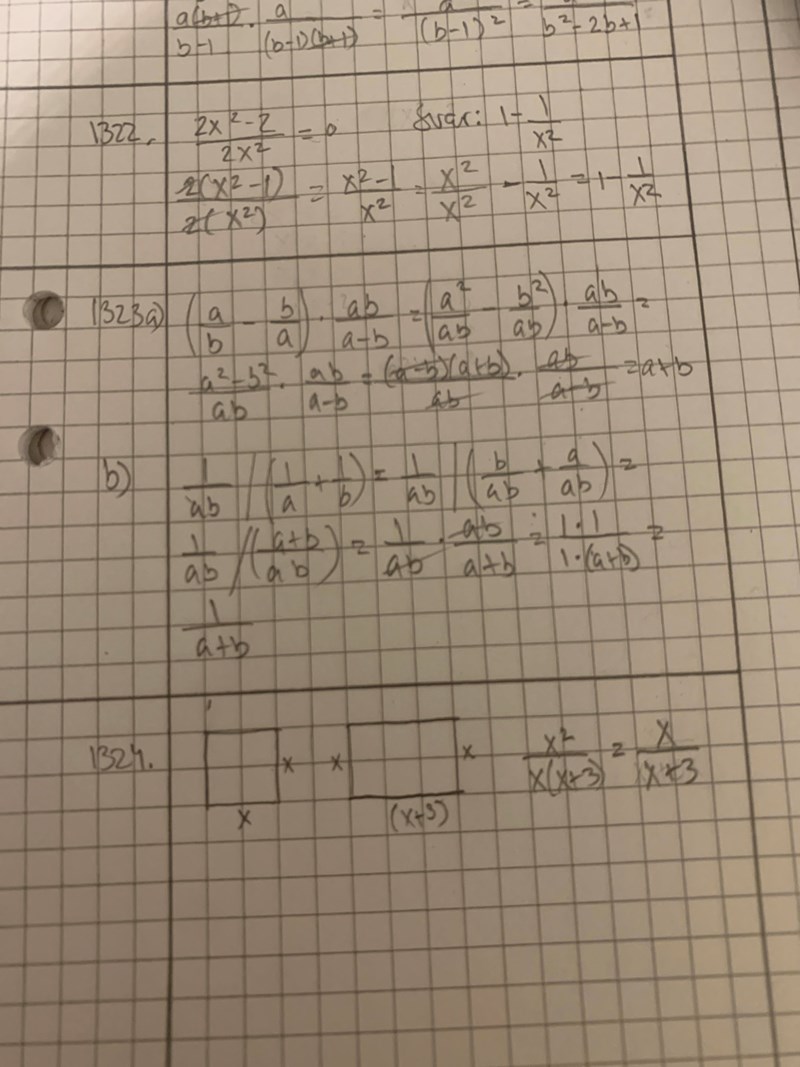 a(b+1)/(b-1) · a/((b-1)(b+1)) = a/(b-1)² = /(b²-2b+1)
1322. (2x²-2)/(2x²) = 0 Svar: 1-1/x²
2(x²-1)/2(x²) = (x²-1)/x² = x²/x² - 1/x² = 1-1/x²
1323a) (a/b - b/a) · ab/(a-b) = (a²/ab - b²/ab) · ab/(a-b) =
(a²-b²)/ab · ab/(a-b) = (a-b)(a+b)/ab · ab/(a-b) = a+b
b) 1/ab / (1/a + 1/b) = 1/ab / (b/ab + a/ab) =
1/ab / ((a+b)/ab) = 1/ab · ab/(a+b) = 1·1/(1·(a+b)) =
1/(a+b)
1324. x x x x²/(x(x+3)) = x/(x+3)
x (x+3)